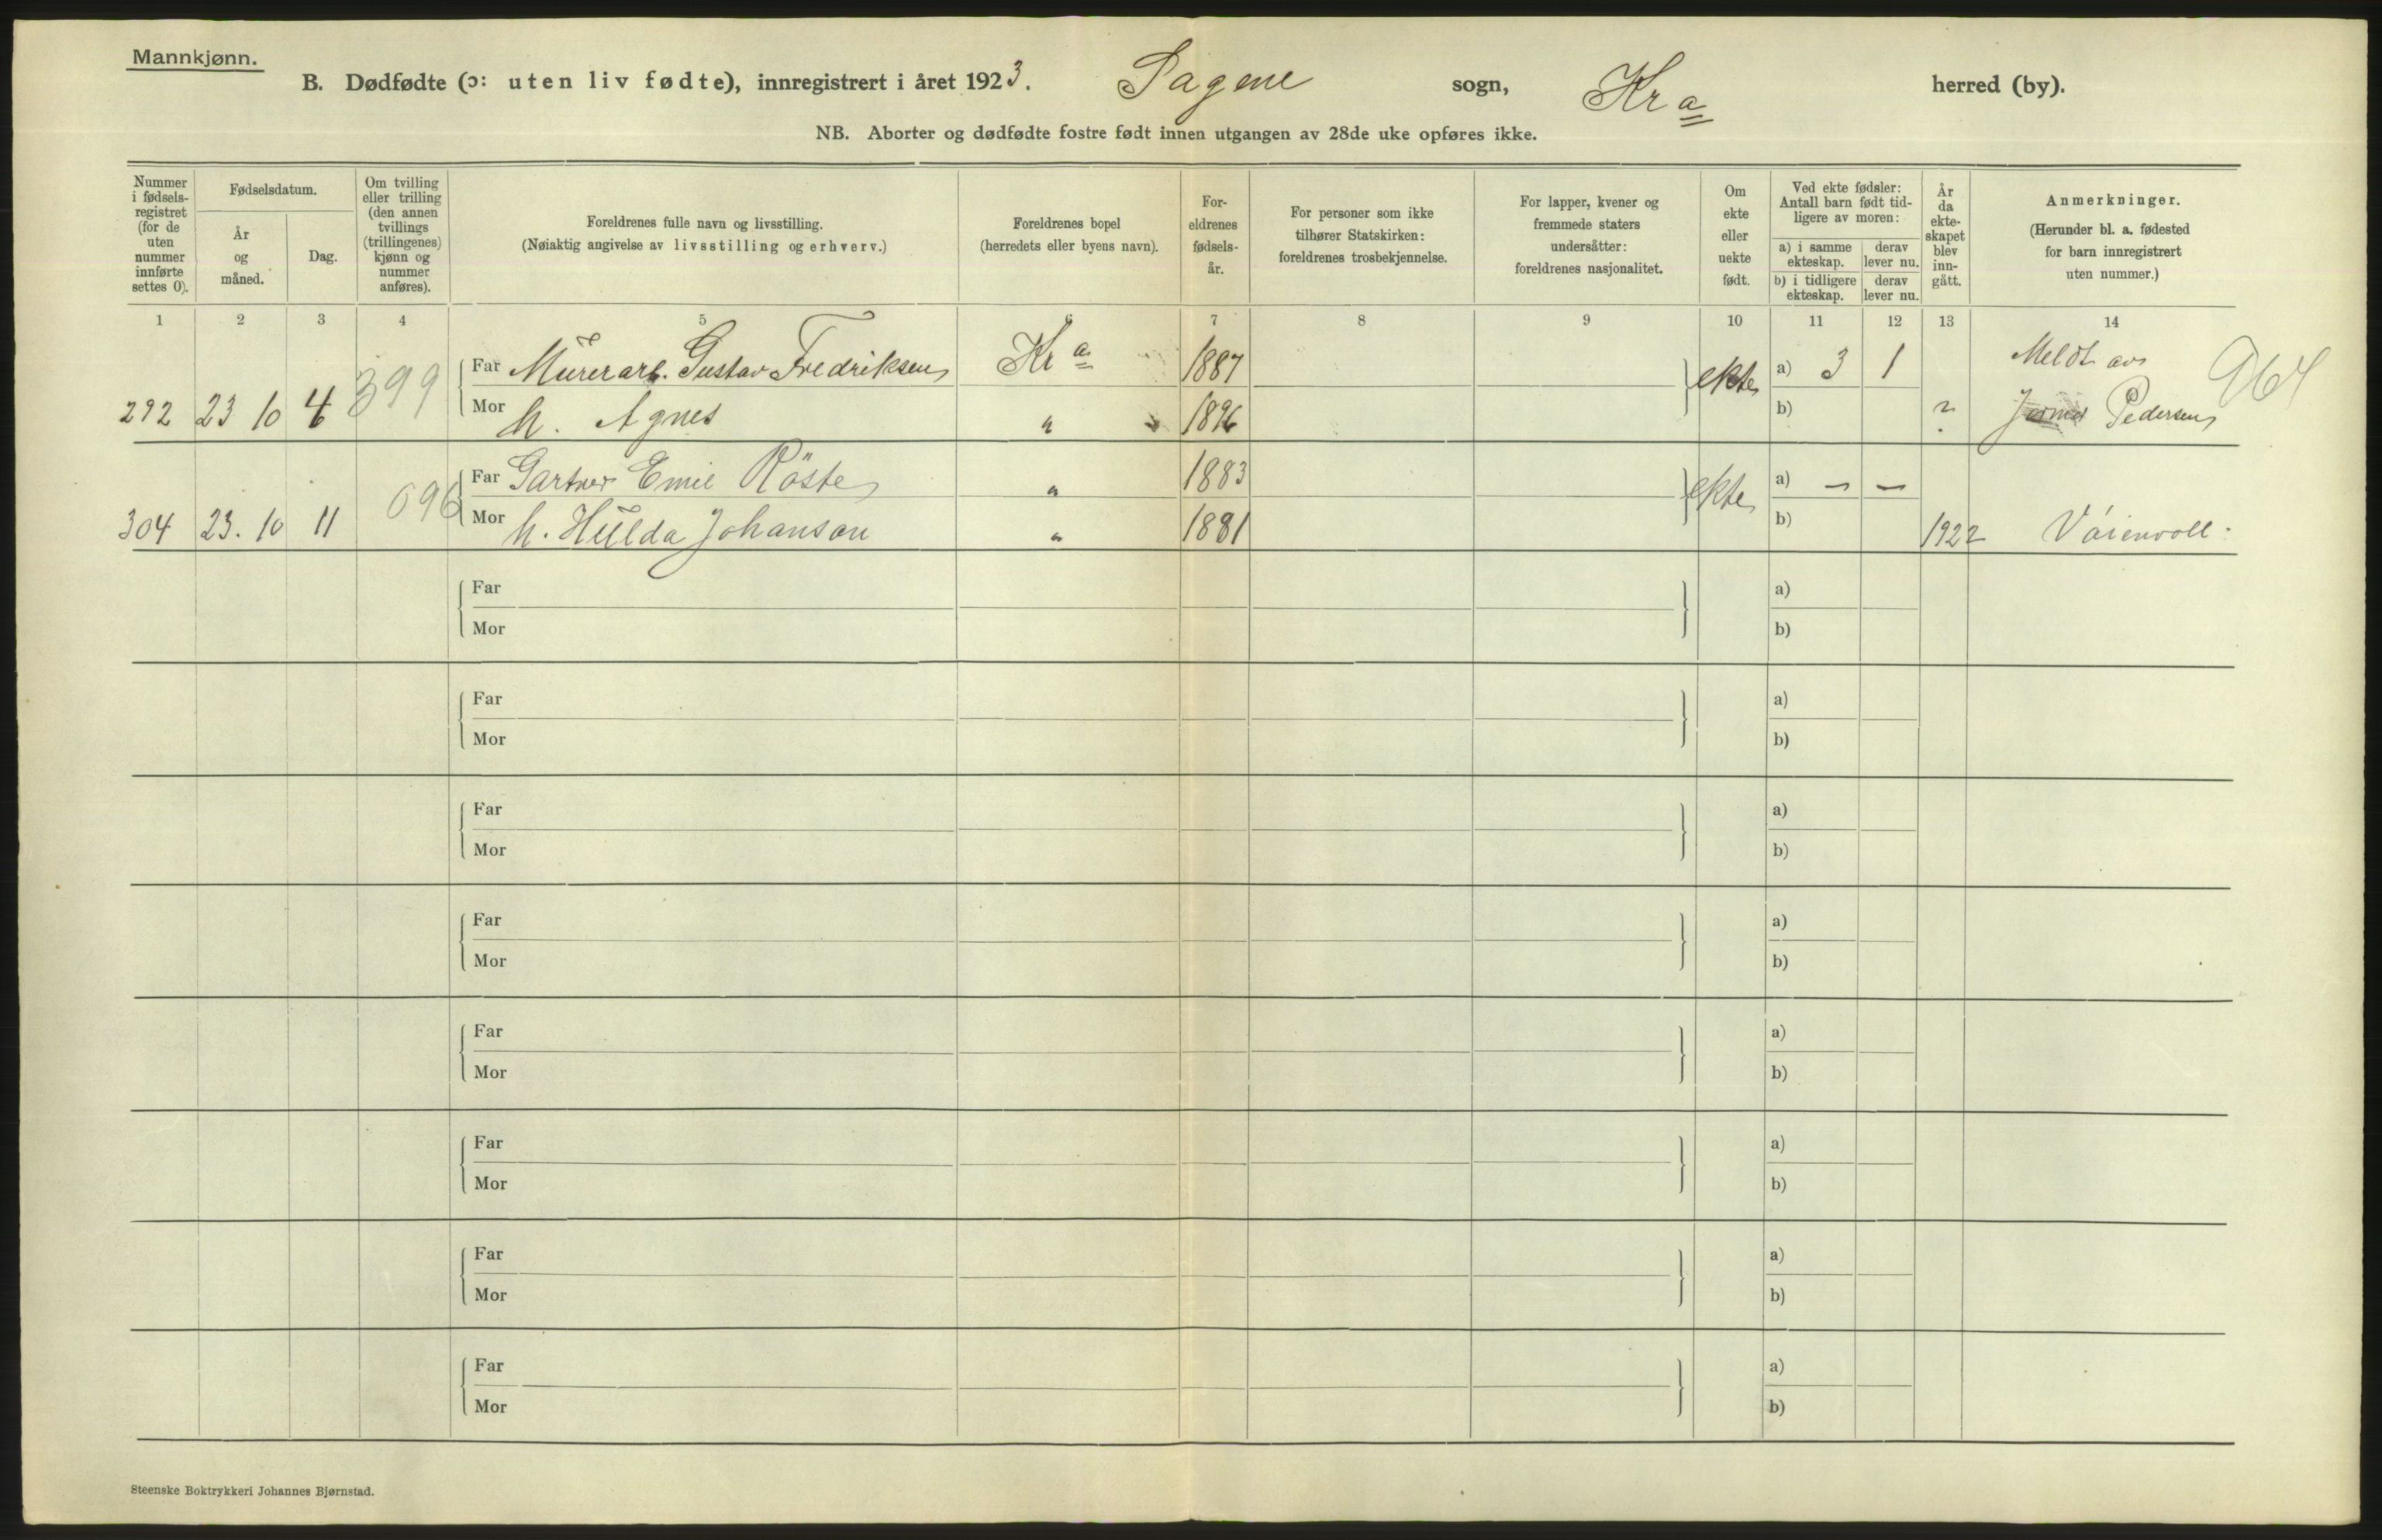 Mannkjønn.
B. Dødfødte (ɔ: uten liv fødte), innregistrert i året 1923. Sagene sogn, Kra herred (by).
NB. Aborter og dødfødte fostre født innen utgangen av 28de uke opføres ikke.
Nummer
i fødsels-
registret
(for de
uten
nummer
innførte
settes 0).
Fødselsdatum.
År
og
måned.
Dag.
Om tvilling
eller trilling
(den annen
tvillings
(trillingenes)
kjønn og
nummer
anføres).
Foreldrenes fulle navn og livsstilling.
(Nøiaktig angivelse av livsstilling og erhverv.)
Foreldrenes bopel
(herredets eller byens navn).
For-
eldrenes
fødsels-
år.
For personer som ikke
tilhører Statskirken:
foreldrenes trosbekjennelse.
For lapper, kvener og
fremmede staters
undersåtter:
foreldrenes nasjonalitet.
Om
ekte
eller
uekte
født.
Ved ekte fødsler:
Antall barn født tid-
ligere av moren:
a) i samme
ekteskap.
derav
lever nu.
b) i tidligere
ekteskap.
derav
lever nu.
År
da
ekte-
skapet
blev
inn-
gått.
Anmerkninger.
(Herunder bl. a. fødested
for barn innregistrert
uten nummer.)
1 2 3 4 5 6 7 8 9 10 11 12 13 14
399 Far Murerarb. Gustav Fredriksen Kra 1887 ekte a) 3 1 Meldt av 964
292 23 10 4 Mor h. Agnes " 1896 b) ? Pedersen
096 Far Gartner Emil Röste " 1883 ekte a) — —
304 23. 10 11 Mor h. Hulda Johanson " 1881 b) 1922 Vöienvoll.
Far a)
Mor b)
Far a)
Mor b)
Far a)
Mor b)
Far a)
Mor b)
Far a)
Mor b)
Far a)
Mor b)
Far a)
Mor b)
Far a)
Mor b)
Steenske Boktrykkeri Johannes Bjørnstad.